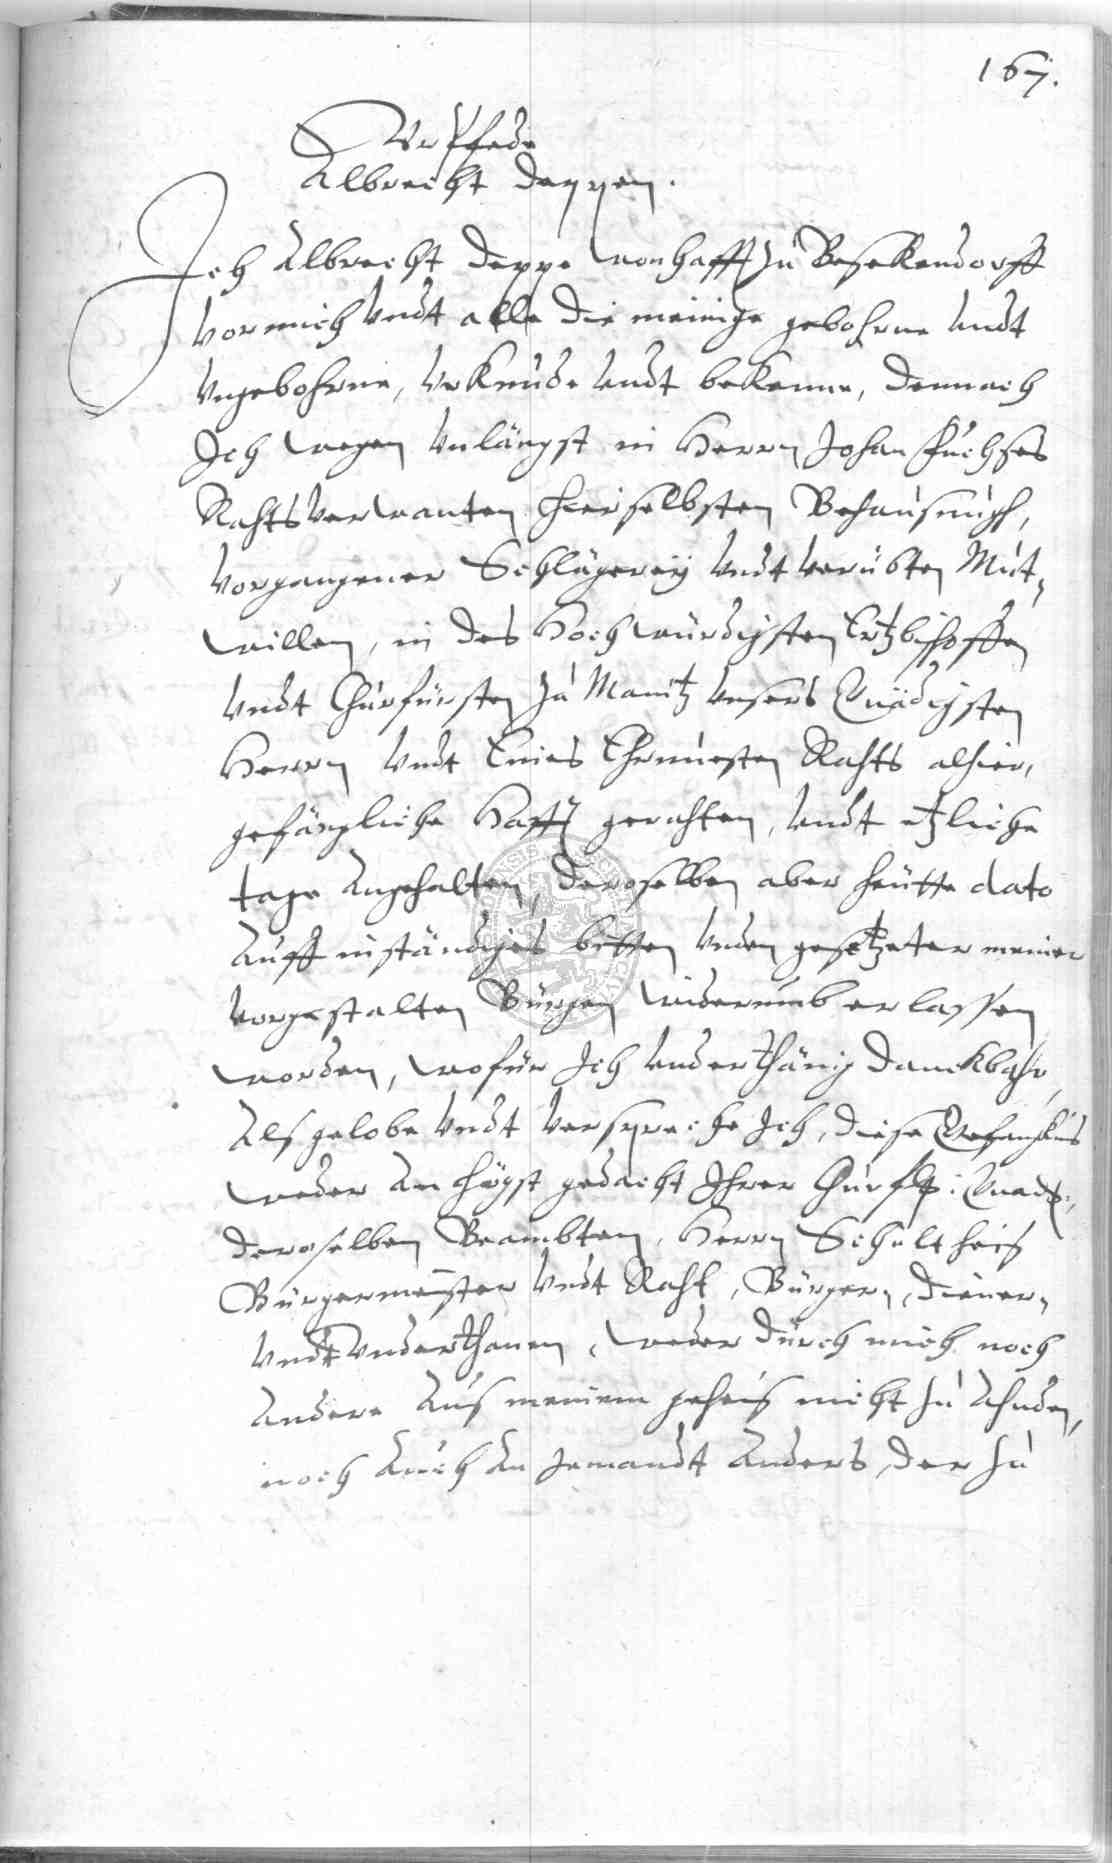 167.
Vrpfede
Albrecht Deppen.
Ich Albrecht Deppe wonhafft zu Besekendorff
vor mich vndt alle die meinige gebohrne vndt
vngebohrne, vrkunde vndt bekenne, demnach
Ich wegen vnlängst in Herrn Johan Fuchses
Rahtsverwanten hierselbsten Behausung,
vorgangener Schlägereÿ vndt verübten Mut-
willen, in des Hochwürdigsten Ertzbischoffen
vndt Churfürsten zu Maintz vnsers Gnädigsten
Herrn vndt Eines Ehrnuesten Rahts alhier,
gefängliche Hafft gerahten, vndt etzliche
tage angehalten, deroselben aber heutte dato
auff inständiges bitten vnden gesetzeter meiner
vorgestalten Bürgen widerumb erlassen
worden, wofür Ich vnderthänig danckbahr,
Als gelobe vndt verspreche Ich, diese Gefangknus
weder an högst gedacht Ihrer Churfl: Gnad:,
deroselben Beambten, Herrn Schultheis
Bürgermeister vndt Raht, Bürgern, Dienern
vndt vnderthanen, weder durch mich noch
andere aus meinem geheis nicht zu ahnden,
noch auch an Jemandt anders, der zu